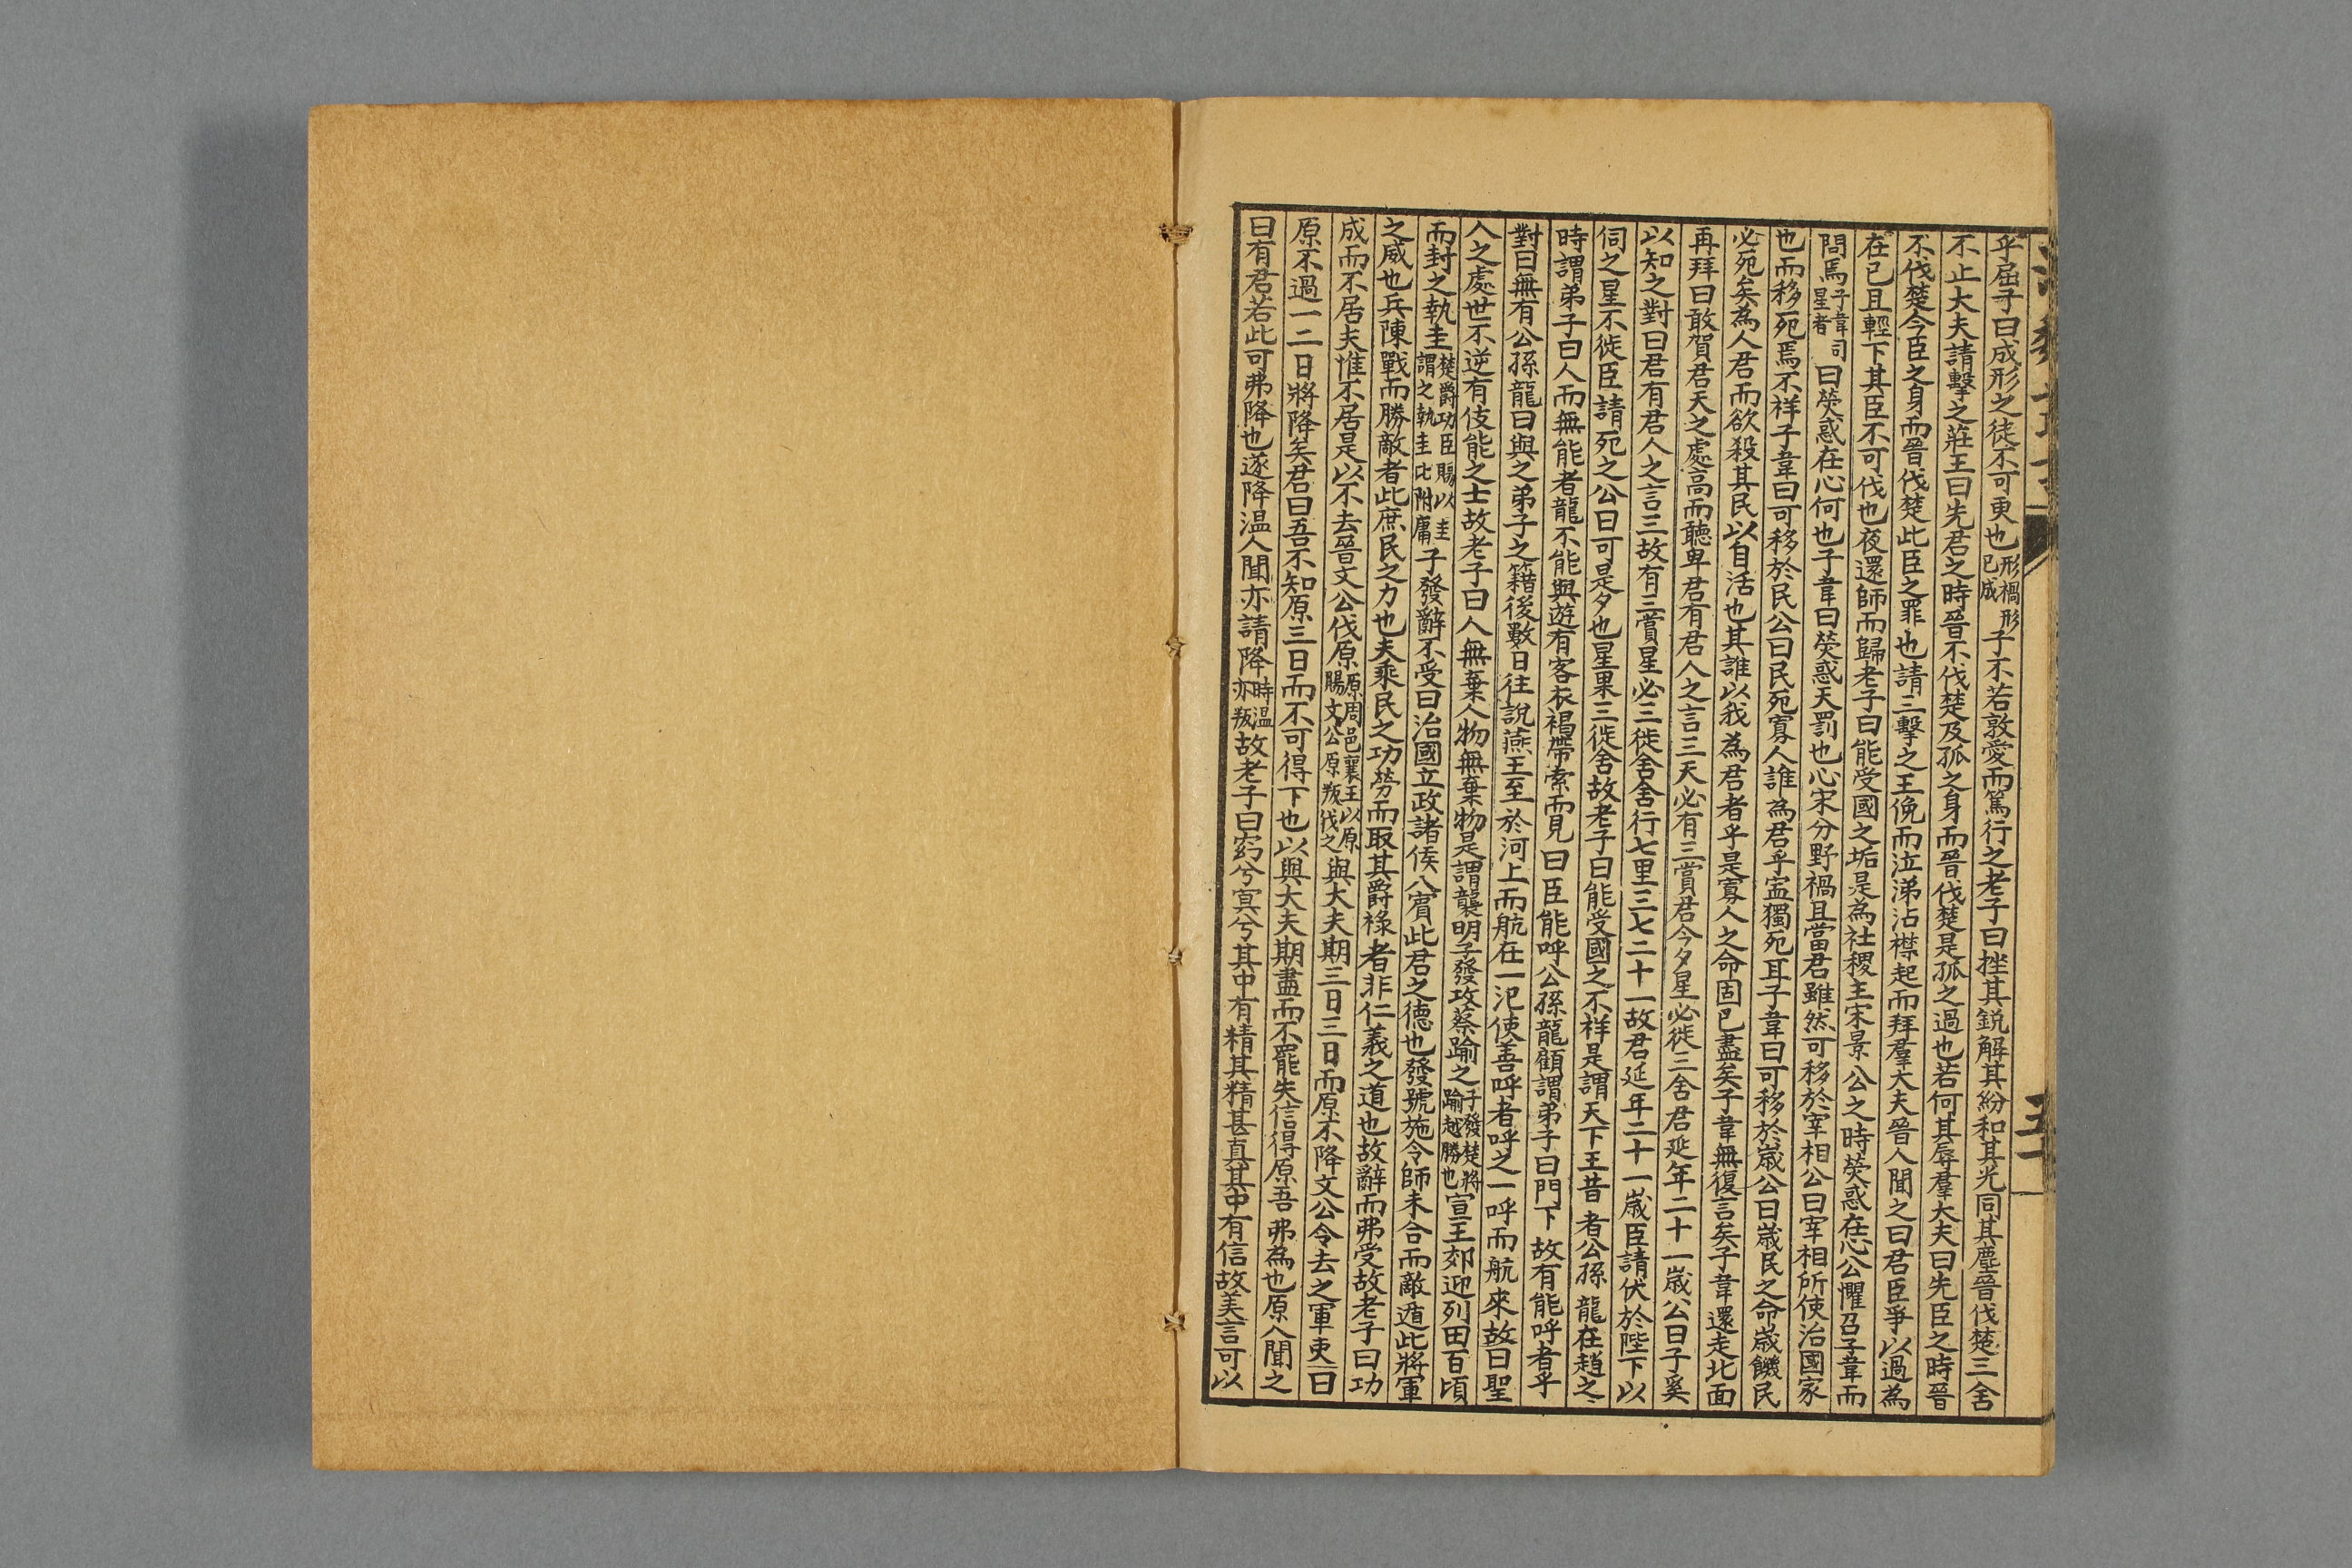 乎屈子曰成形之徒不可更也形禍形已成子不若敦愛而篤行之老子曰挫其銳解其紛和其光同其塵晉伐楚三舍
不止大夫請擊之莊王曰先君之時晉不伐楚及孤之身而晉伐楚是孤之過也若何其辱羣大夫曰先臣之時晉
不伐楚今臣之身而晉伐楚此臣之罪也請三擊之王俛而泣涕沾襟起而拜羣大夫晉人聞之曰君臣爭以過為
在已且輕下其臣不可伐也夜還師而歸老子曰能受國之垢是為社稷主宋景公之時熒惑在心公懼召子韋而
問焉子韋司星者曰熒惑在心何也子韋曰熒惑天罰也心宋分野禍且當君雖然可移於宰相公曰宰相所使治國家
也而移死焉不祥子韋曰可移於民公曰民死寡人誰為君乎寍獨死耳子韋曰可移於歲公曰歲民之命歲饑民
必死矣為人君而欲殺其民以自活也其誰以我為君者乎是寡人之命固已盡矣子韋無復言矣子韋還走北面
再拜曰敢賀君天之處高而聽卑君有君人之言三天必有三賞君今夕星必徙三舍君延年二十一歲公曰子奚
以知之對曰君有君人之言三故有三賞星必三徙舍舍行七里三七二十一故君延年二十一歲臣請伏於陛下以
伺之星不徙臣請死之公曰可是夕也星果三徙舍故老子曰能受國之不祥是謂天下王昔者公孫龍在趙之
時謂弟子曰人而無能者龍不能與遊有客衣褐帶索而見曰臣能呼公孫龍顧謂弟子曰門下故有能呼者乎
對曰無有公孫龍曰與之弟子之籍後數日往說燕王至於河上而航在一汜使善呼者呼之一呼而航來故曰聖
人之處世不逆有伎能之士故老子曰人無棄人物無棄物是謂襲明子發攻蔡踰之子發楚將踰越勝也宣王郊迎列田百頃
而封之執圭楚爵功臣賜以圭謂之執圭比附庸子發辭不受曰治國立政諸侯入賓此君之德也發號施令師未合而敵遁此將軍
之威也兵陳戰而勝敵者此庶民之力也夫乘民之功勞而取其爵祿者非仁義之道也故辭而弗受故老子曰功
成而不居夫惟不居是以不去晉文公伐原原周邑襄王以原賜文公原叛伐之與大夫期三日三日而原不降文公令去之軍吏曰
原不過一二日將降矣君曰吾不知原三日而不可得下也以與大夫期盡而不罷失信得原吾弗為也原人聞之
曰有君若此可弗降也遂降溫人聞亦請降時溫亦叛故老子曰窈兮冥兮其中有精其精甚真其中有信故美言可以